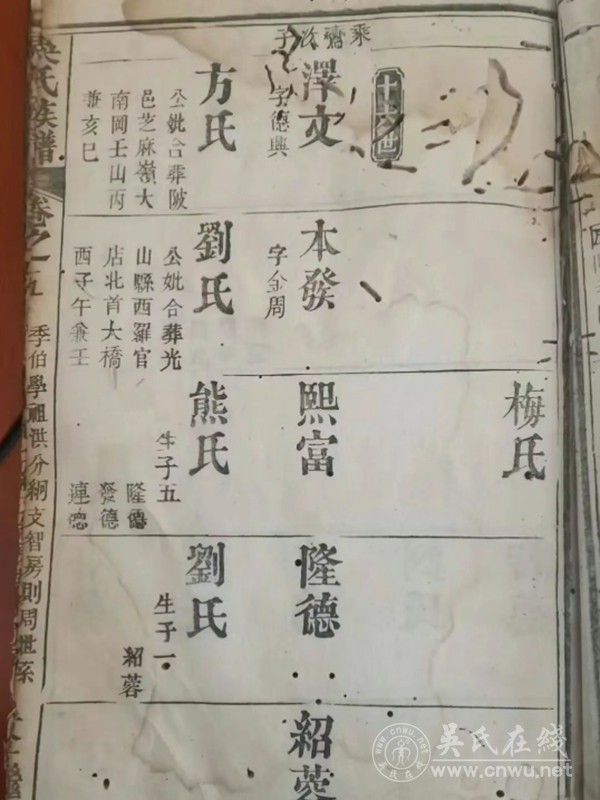 十六世
乘齋次子
澤文
字德興
方氏
公妣合葬陂
邑芝麻嶺大
南岡壬山丙
兼亥巳
本發
字金周
劉氏
公妣合葬光
山縣西羅官
店北首大橋
西子午兼壬
梅氏
熙富
熊氏
生子五
隆德
發德
連德
隆德
劉氏
生子一
紹蓉
紹蓉
吳氏族譜
卷之十九
季伯學祖洪分綱支智房則周世系
吳氏在线
www.cnwu.net